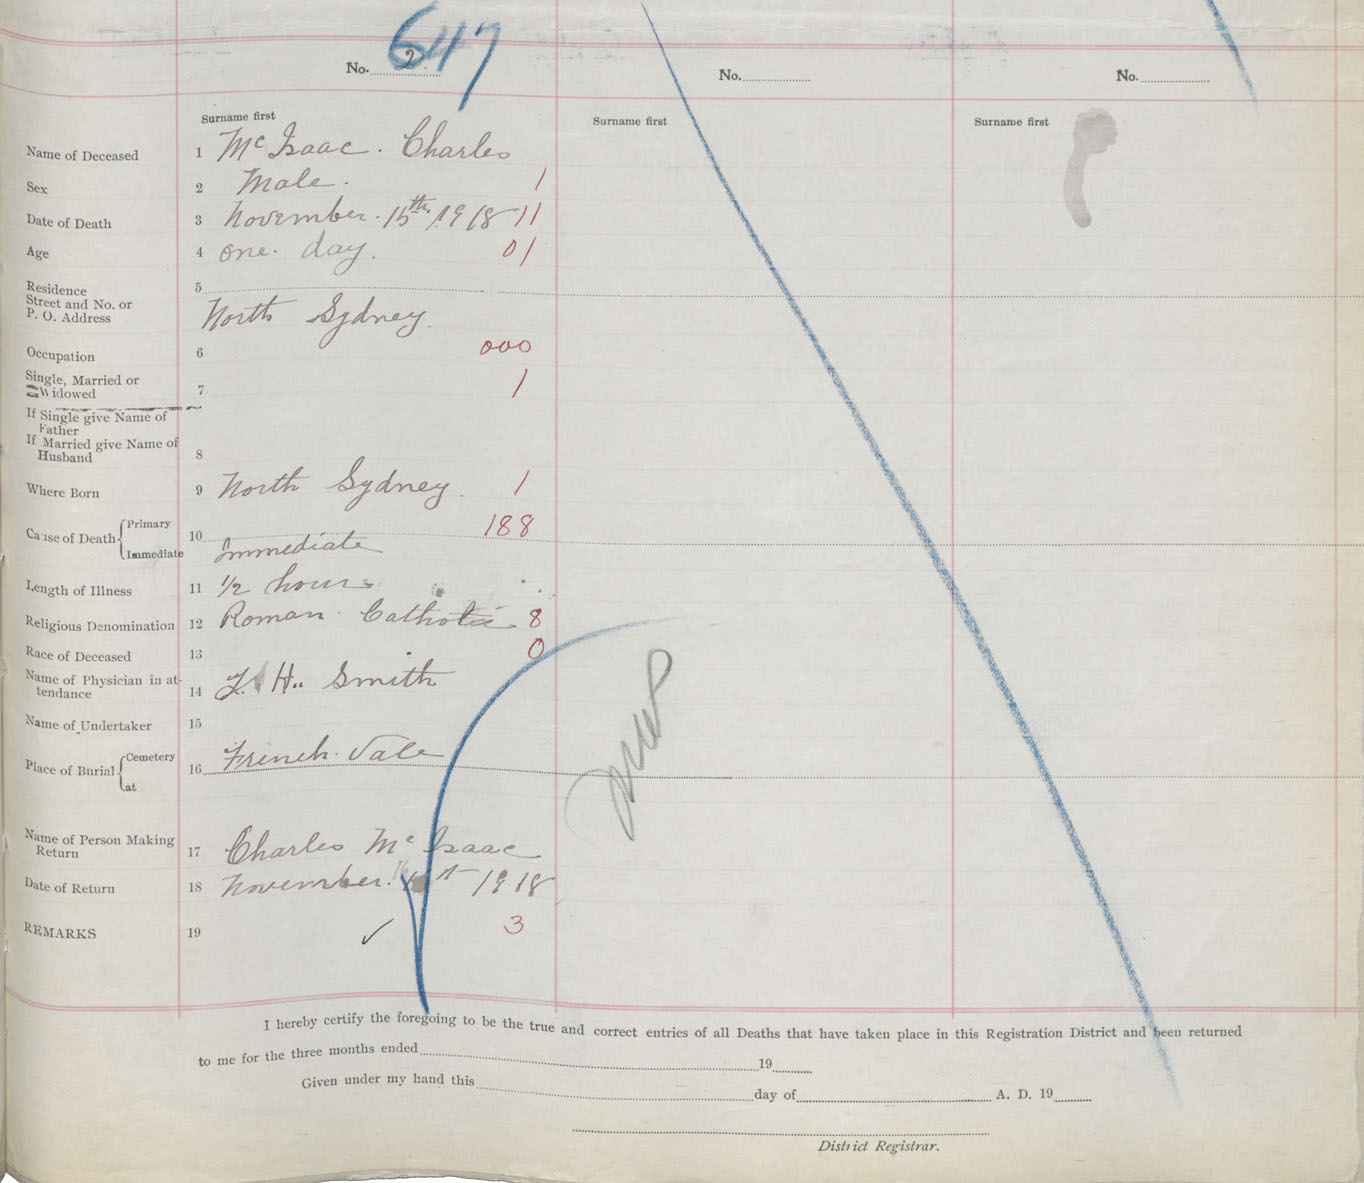 647
No. 2 No. No.
Surname first Surname first Surname first
Name of Deceased 1 McIsaac. Charles
Sex 2 Male. 1
Date of Death 3 November. 15th, 1918 11
Age 4 one. day. 01
Residence 5
Street and No. or
P. O. Address North Sydney.
Occupation 6 000
Single, Married or
Widowed 7 1
If Single give Name of
Father
If Married give Name of
Husband 8
Where Born 9 North Sydney. 1
Cause of Death Primary 10 188
Immediate Immediate
Length of Illness 11 1/2 hours
Religious Denomination 12 Roman Catholic 8
Race of Deceased 13 0
Name of Physician in at-
tendance 14 H. Smith
Name of Undertaker 15
Place of Burial Cemetery 16 French. Vale
at
Name of Person Making
Return 17 Charles McIsaac
Date of Return 18 November. 1918
REMARKS 19 ✓ 3
I hereby certify the foregoing to be the true and correct entries of all Deaths that have taken place in this Registration District and been returned
to me for the three months ended 19
Given under my hand this day of A. D. 19
District Registrar.